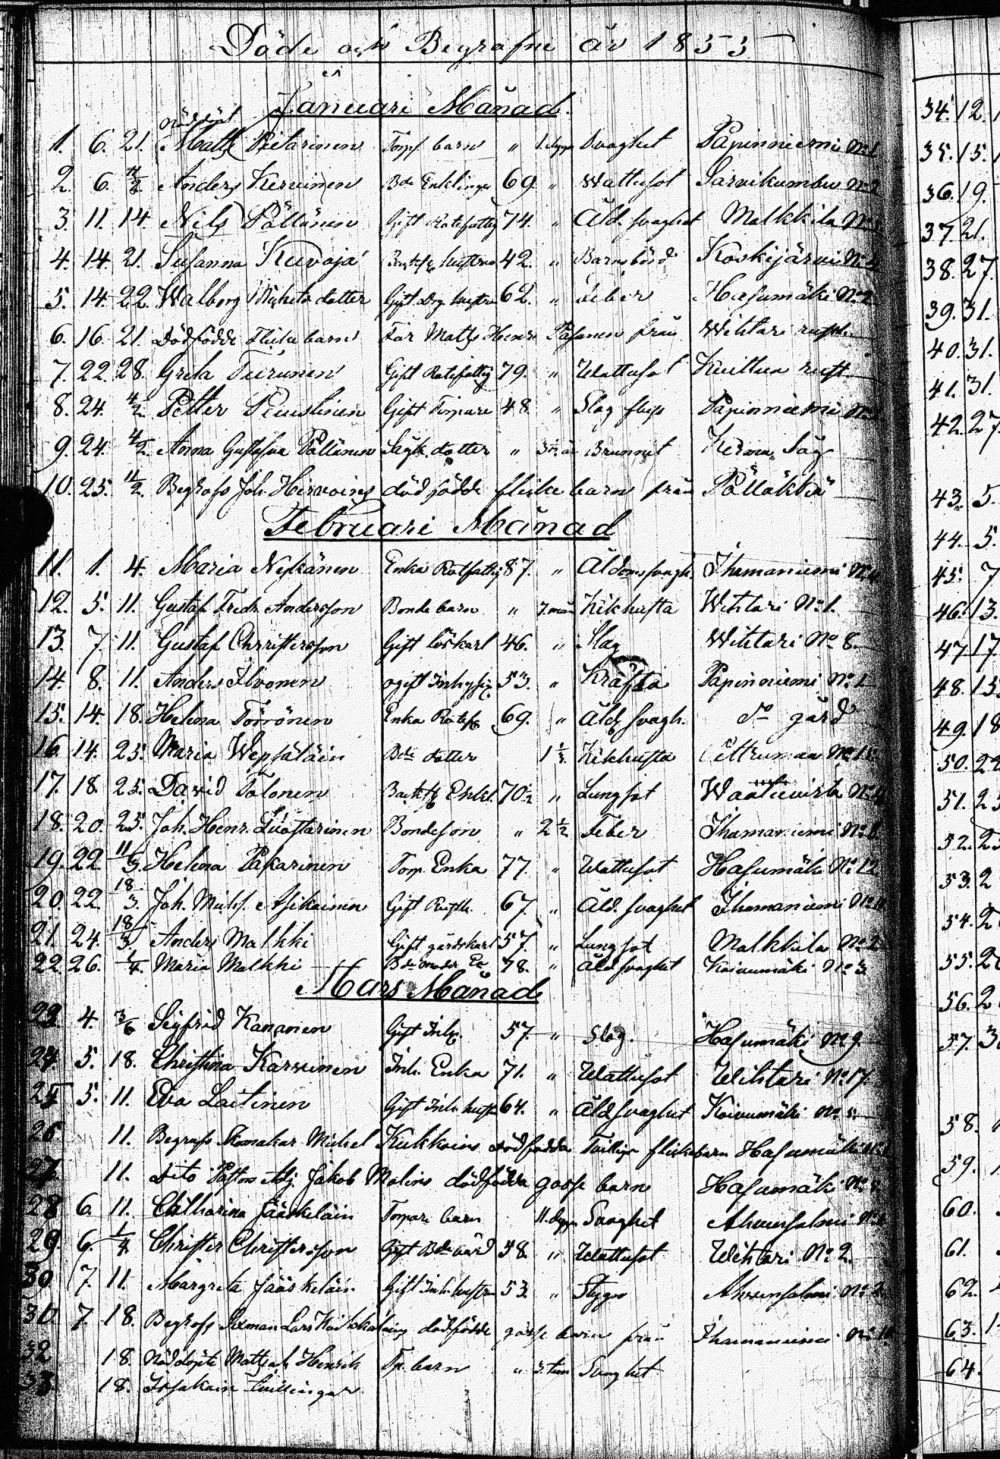 Döde och Begrafne År 1855
Januari Månad.
1. 6. 21. Nöddöpt Matts Pitarinen Torp. barn " 1. dygn Svaghet Papinniemi No 1
2. 6. 4/2 Anders Kervinen Bde Enkling 69. " Wattusot Sarvikumbu No 2
3. 11. 14. Nils Pöllänen Gift Rotefattig 74. " Åld. svaghet Malkkila No
4. 14. 21. Susanna Kuvaja 42. " Barnsbörd Koskijärvi No
5. 14. 22. Walborg Mikels dotter Gift. hustru 62. " feber Hasumäki No 2
6. 16. 21. Dödfödde flicke barn Far Matts Heinr. från Wihtari
7. 22. 28. Greta Tiirunen Gift Rotefattig 79. " Wattusot
8. 24. 4/2 Petter Gift Torpare 48. " Slag Papinniemi No
9. 24. 4/2 Anna Gustafva Pöllänen dotter " Brunnit Kerma Såg
10. 25. 11/2 Begrafs Joh. Hirvoinens dödfödde flicke barn från Pölläkkä
Februari Månad
11. 1. 4. Maria Nykänen Enka Rotfattig 87. " Ålderdomsvagh. Ihamaniemi No 4
12. 5. 11. Gustaf Fredr. Andersson Bonde barn " 7. mån Kikhusta Wihtari No 1.
13. 7. 11. Gustaf Christersson Gift löskarl 46. " Slag Wihtari No 8.
14. 8. 11. Anders Ilvonen ogift Inhysig 53. " Kräfta Papinniemi No 1
15. 14. 18. Helena Törrönen Enka Rotef. 69. " Åld. svagh. Do gård
16. 14. 25. Maria Wepsäläin Bde dotter 1 1/2 Kikhusta No 15
17. 18. 25. David Tolonen Enkl 70 1/2 " Lungsot No 4
18. 20. 25. Joh. Henr. Bondeson " 2 1/2 Feber Ihamaniemi No 1
19. 22 11/3 Helena Pakarinen Torp. Enka 77. " Wattusot Hasumäki No 12
20. 22 18/3. Joh. Mich. Asikainen Gift 67. " Åld. svaghet Ihamaniemi No
21. 24. 18/3. Anders Malkki Gift gårdskarl 57. " Lungsot Malkkila No 2
22. 26. 1/4. Maria Malkki 78. " Åld svaghet Koivumäki No 3
Mars Månad
23 4. 3/6 Sigfrid Kananen Gift Inh. 57. " Slag. Hasumäki No 9.
24 5. 18. Christina Karvinen Inh. Enka 71. " Wattusot Wihtari No 17.
25 5. 11. Eva Laitinen Gift Inh. hust. 64. " Åld svaghet Koivumäki No
26. 11. Begrafs Skomakar Michel Kukkoins dödfödda flickebarn Hasumäki No
27 11. Dito Jakob Molins dödfödda gosse barn Hasumäki No
28 6. 11. Catharina Jääskeläin Torpare barn 11. dygn Svaghet Ahvensalmi No
29. 6. 1/4 Christer Christersson Gift Bde 58. " Wattusot Wihtari No 2.
30 7. 11. Margreta Jääskeläin Gift Inh. hustru 53. " Styng Ahvensalmi No 2
31. 7. 18. Begrafs Lars dödfödde gosse barn från Ihamaniemi No
32 18. Nöddöpte Matts o Henrik Tp. barn " 3. tim Svaghet
33 18. Tvillingar
34. 12.
35. 15.
36. 19.
37. 21.
38. 27.
39. 31.
40. 31.
41. 31.
42. 27.
43. 5.
44. 5.
45. 7
46. 13.
47. 17
48. 15
49. 18
50. 22
51. 25
52. 25
53. 2
54. 2
55. 2
56. 2
57. 3
58.
59.
60.
61.
62.
63. 1
64.